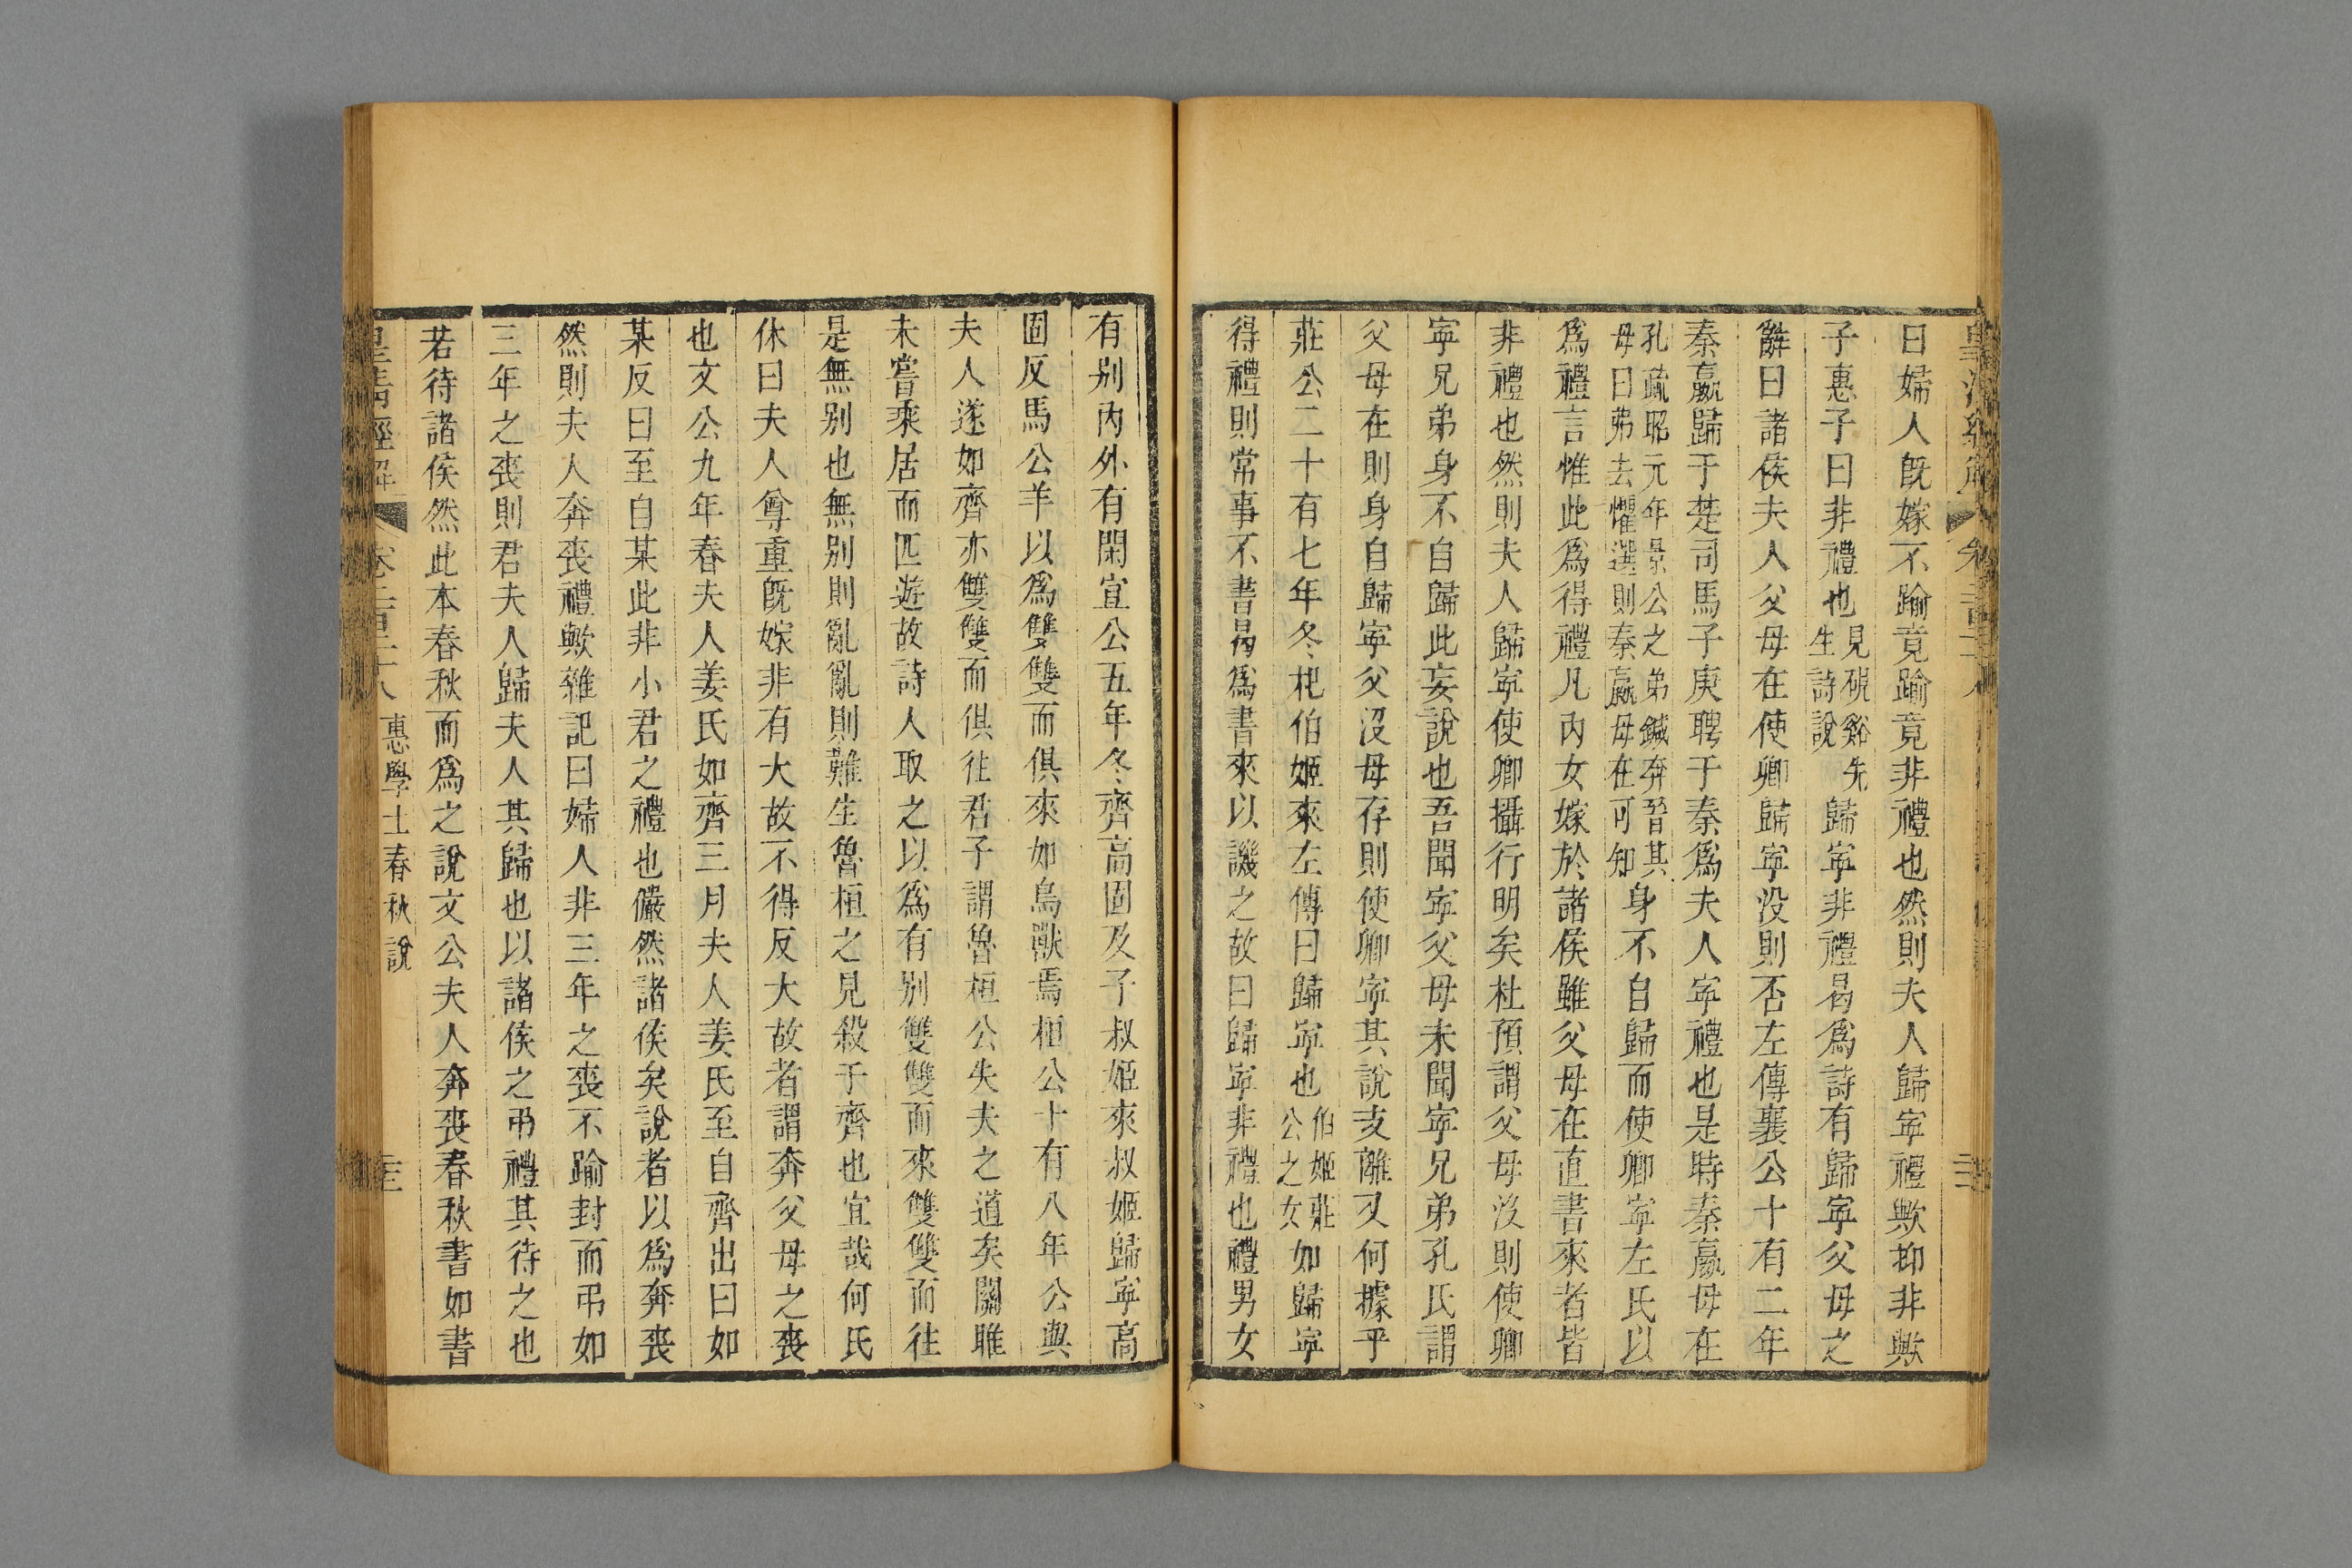 曰婦人旣嫁不踰竟踰竟非禮也然則夫人歸寧禮歟抑非歟
子惠子曰非禮也見硯谿先生詩說歸寧非禮曷爲詩有歸寧父母之
辭曰諸侯夫人父母在使卿歸寧没則否左傳襄公十有二年
秦嬴歸于楚司馬子庚聘于秦爲夫人寧禮也是時秦嬴母在
孔疏昭元年景公之弟鍼奔晉其母曰弗去懼選則秦嬴母在可知身不自歸而使卿寧左氏以
爲禮言惟此爲得禮凡內女嫁於諸侯雖父母在直書來者皆
非禮也然則夫人歸寧使卿攝行明矣杜預謂父母没則使卿
寧兄弟身不自歸此妄說也吾聞寧父母未聞寧兄弟孔氏謂
父母在則身自歸寧父没母存則使卿寧其說支離又何據乎
莊公二十有七年冬杞伯姬來左傳曰歸寧也伯姬莊公之女如歸寧
得禮則常事不書曷爲書來以譏之故曰歸寧非禮也禮男女
有别內外有閑宣公五年冬齊高固及子叔姬來叔姬歸寧高
固反馬公羊以爲雙雙而俱來如鳥獸焉桓公十有八年公與
夫人遂如齊亦雙雙而俱往君子謂魯桓公失夫之道矣關雎
未嘗乘居而匹遊故詩人取之以爲有别雙雙而來雙雙而往
是無别也無别則亂亂則難生魯桓之見殺于齊也宜哉何氏
休曰夫人尊重旣嫁非有大故不得反大故者謂奔父母之喪
也文公九年春夫人姜氏如齊三月夫人姜氏至自齊出曰如
某反曰至自某此非小君之禮也儼然諸侯矣說者以爲奔喪
然則夫人奔喪禮歟雜記曰婦人非三年之喪不踰封而弔如
三年之喪則君夫人歸夫人其歸也以諸侯之弔禮其待之也
若待諸侯然此本春秋而爲之說文公夫人奔喪春秋書如書
皇清經解 惠學士春秋說